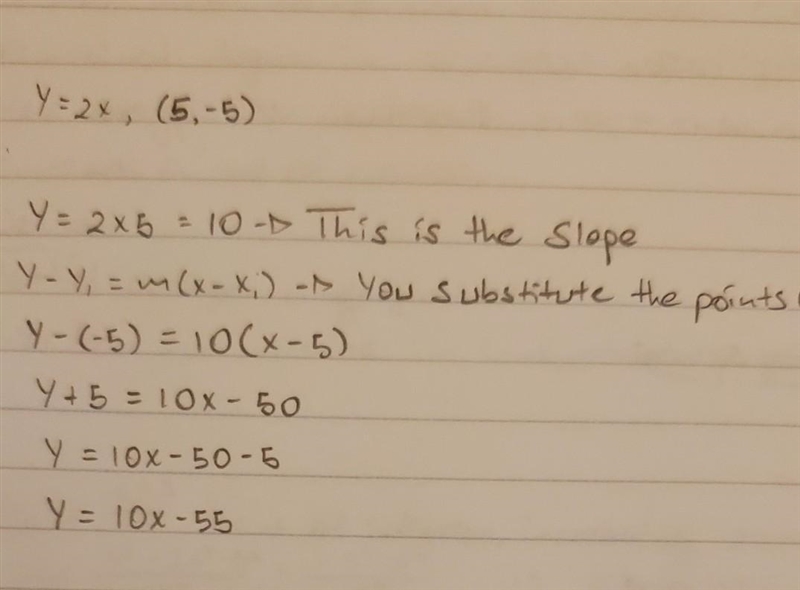 Y = 2x, (5, -5)
Y = 2x5 = 10 -▷ This is the slope
Y - Y₁ = m(x - x₁) -▷ You substitute the points
Y - (-5) = 10(x - 5)
Y + 5 = 10x - 50
Y = 10x - 50 - 5
Y = 10x - 55